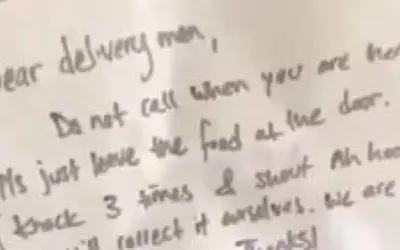 ear delivery man,
Do not call when you are her
Pls just leave the food at the door.
(knock 3 times & shout Ah hoo
'll collect it ourselves. We are
Thanks!